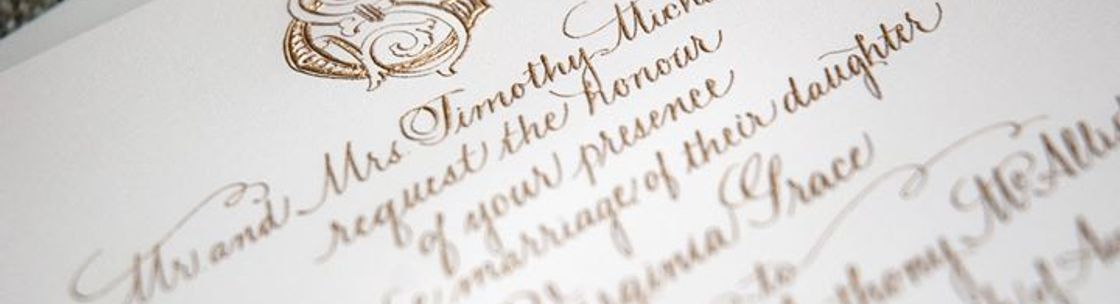 Mr and Mrs Timothy
request the honour
of your presence
marriage of their daughter
Virginia Grace
to